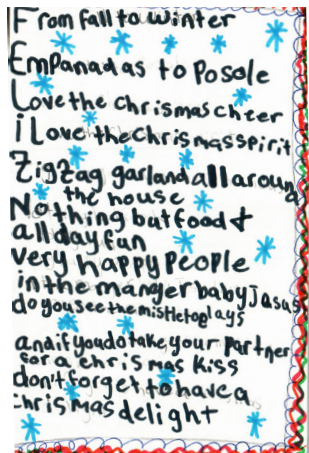 From fall to winter
Empanadas to Posole
Love the chrismas cheer
i Love the chrismas spirit
Zigzag garland all around
the house
Nothing but food &
all day fun
very happy People
in the manger baby jasus
do you see the mistletoe plays
and if you do take your partner
for a chrismas kiss
don't forget to have a
chrismas delight